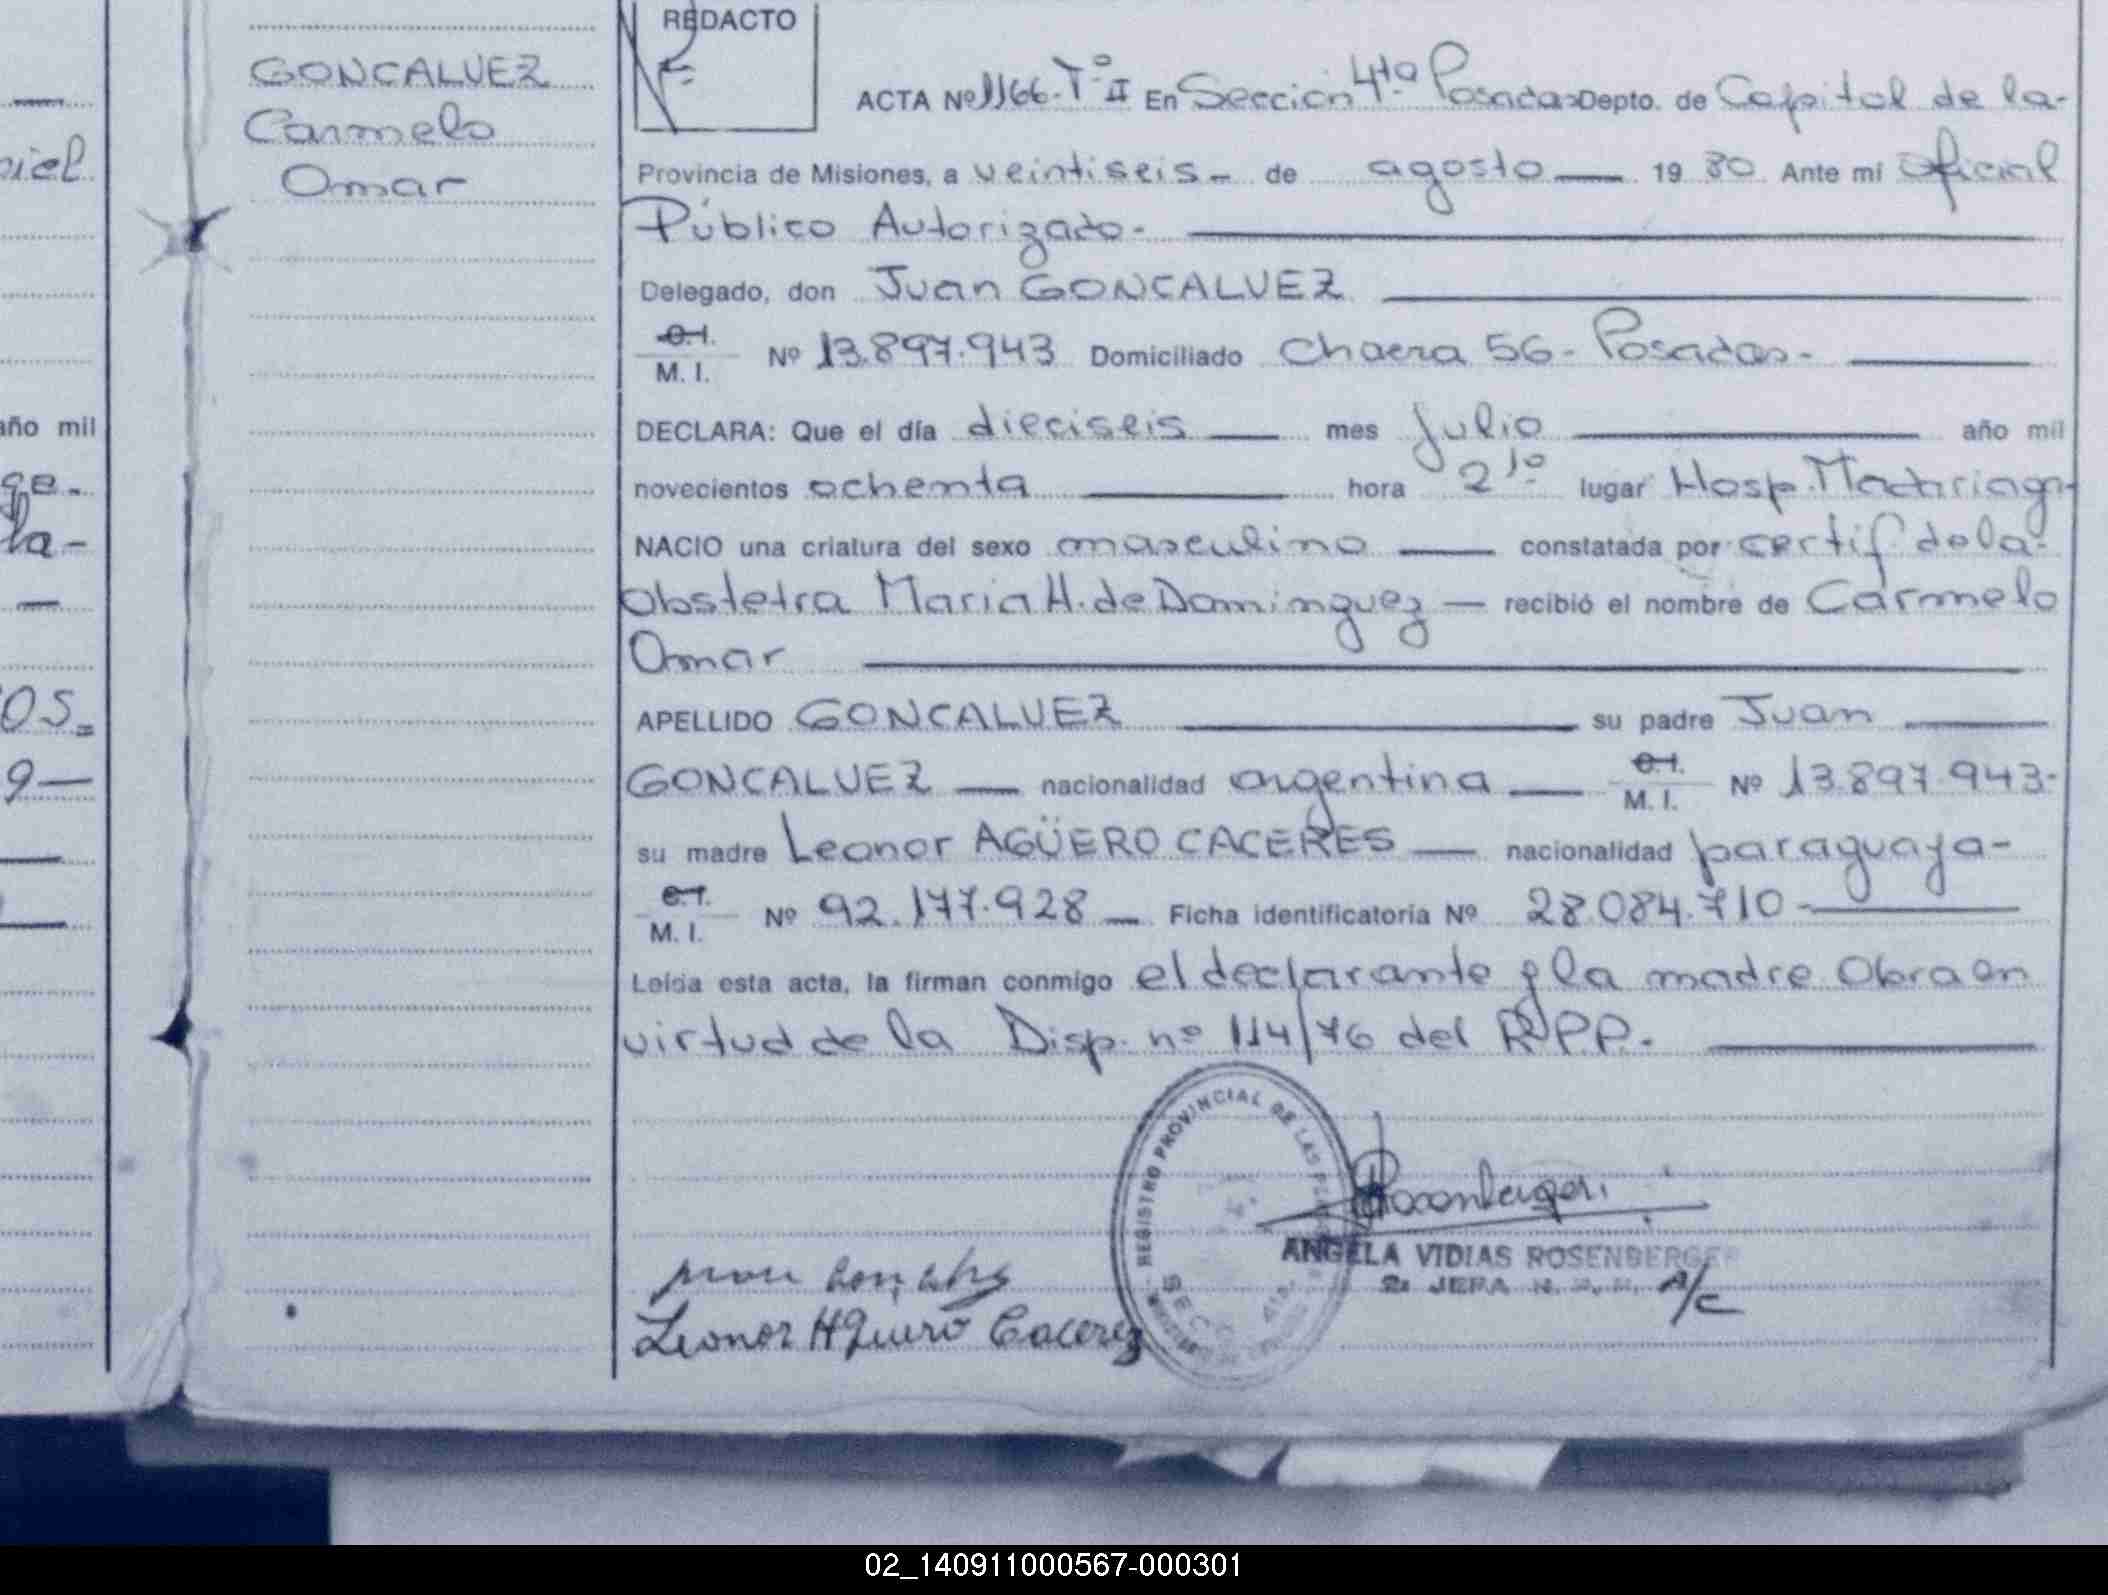 REDACTO
GONCALVEZ
Carmelo
Omar
ACTA Nº 1166-Tº II En Sección 4ta Posadas Depto. de Capital de la-
Provincia de Misiones, a veintiseis- de agosto 19 80 Ante mí Oficial
Público Autorizado-
Delegado, don Juan GONCALVEZ
C.I.
M. I. Nº 13.897.943 Domiciliado Chacra 56- Posadas-
DECLARA: Que el día dieciseis mes Julio año mil
novecientos ochenta hora 21º lugar Hosp. Madariaga-
NACIO una criatura del sexo masculino constatada por certif de la-
obstetra Maria H. de Dominguez — recibió el nombre de Carmelo
Omar
APELLIDO GONCALVEZ su padre Juan
GONCALVEZ — nacionalidad argentina — C.I.
M. I. Nº 13.897.943-
su madre Leonor AGÜERO CACERES — nacionalidad paraguaya-
C.I.
M. I. Nº 92.177.928 — Ficha identificatoria Nº 28.084.710-
Leída esta acta, la firman conmigo el declarante y la madre Obra en
virtud de la Disp. nº 114/76 del R.P.P.-
REGISTRO PROVINCIAL DE LAS
SECC 4ta.
Rosenberger
ANGELA VIDIAS ROSENBERGER
2a JEFA R. P. P. A/C
Leonor AGuero Cacerez
año mil
ge-
la-
OS=
9—
02_140911000567-000301